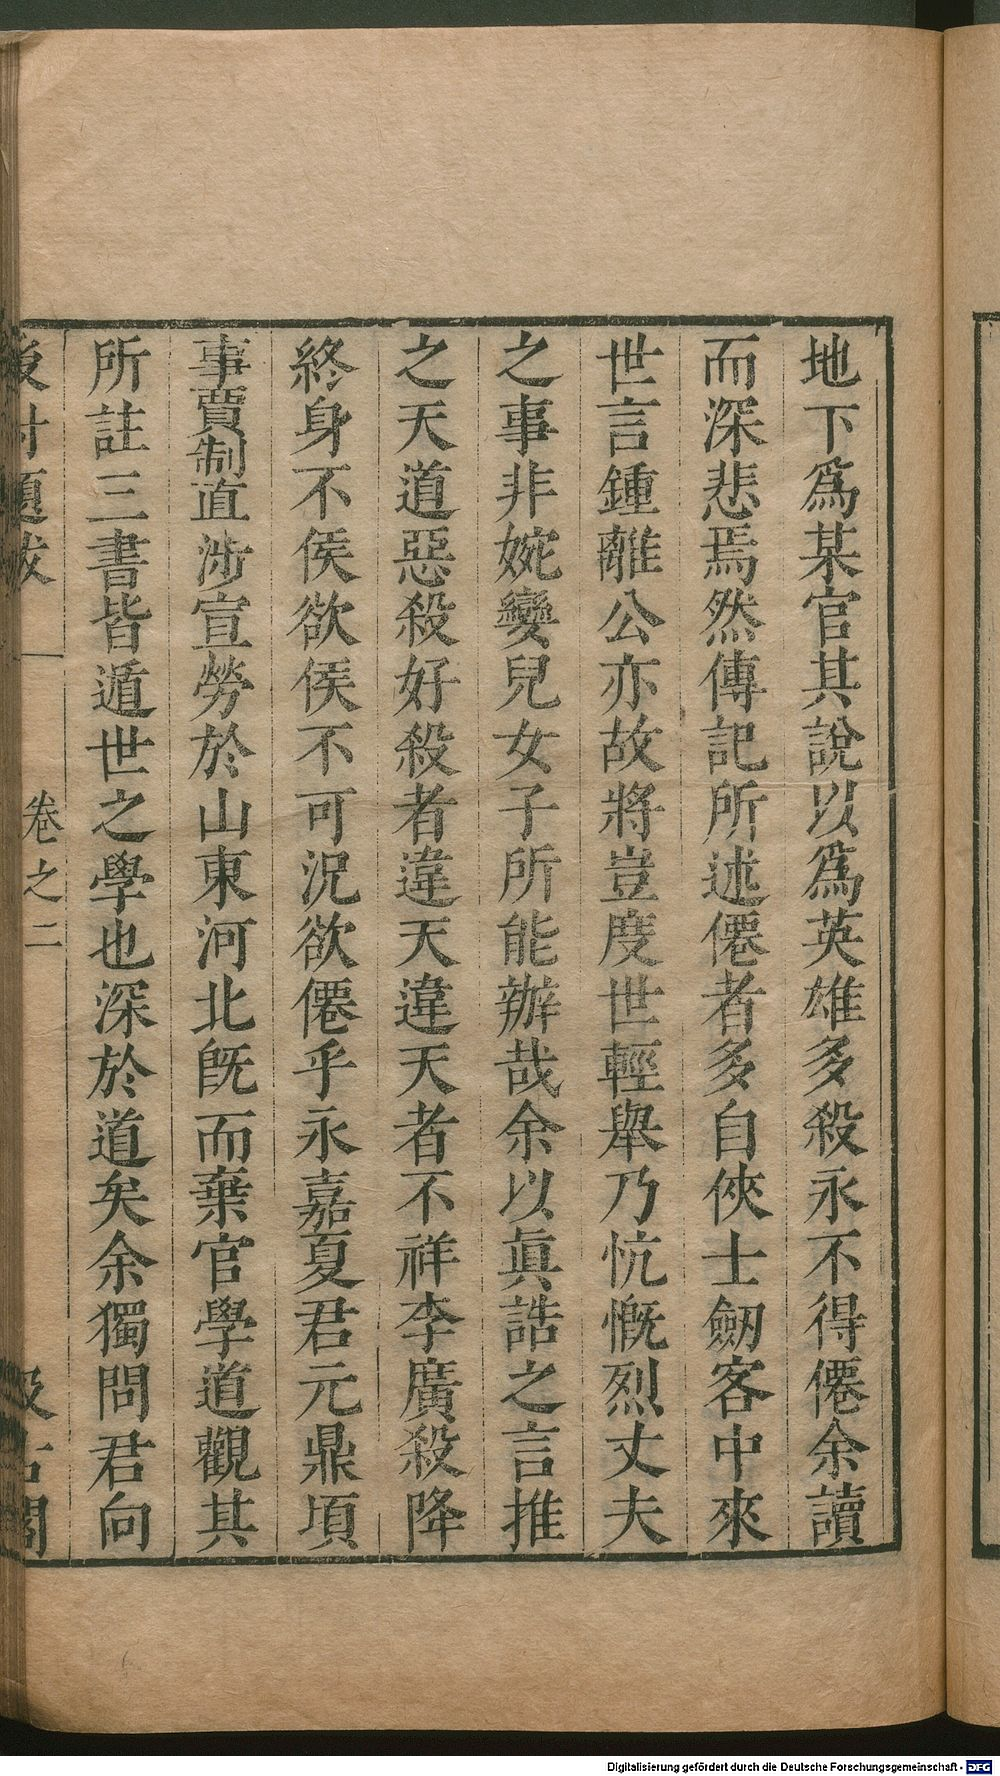 地下爲某官其說以爲英雄多殺永不得僊余讀
而深悲焉然傳記所述僊者多自俠士劒客中來
世言鍾離公亦故將豈度世輕舉乃忼慨烈丈夫
之事非婉孌兒女子所能辦哉余以眞誥之言推
之天道惡殺好殺者違天違天者不祥李廣殺降
終身不侯欲侯不可況欲僊乎永嘉夏君元鼎頃
事賈制直涉宣勞於山東河北旣而棄官學道觀其
所註三書皆遁世之學也深於道矣余獨問君向
後村題跋 卷之二 汲古閣
Digitalisierung gefördert durch die Deutsche Forschungsgemeinschaft - DFG